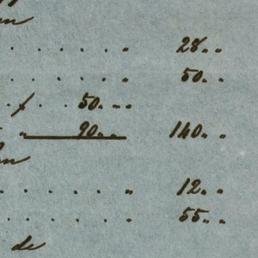 28 „ „
50 „ „
f 50 „ „
90 „ „ 140 „ „
12 „ „
55 „ „
de